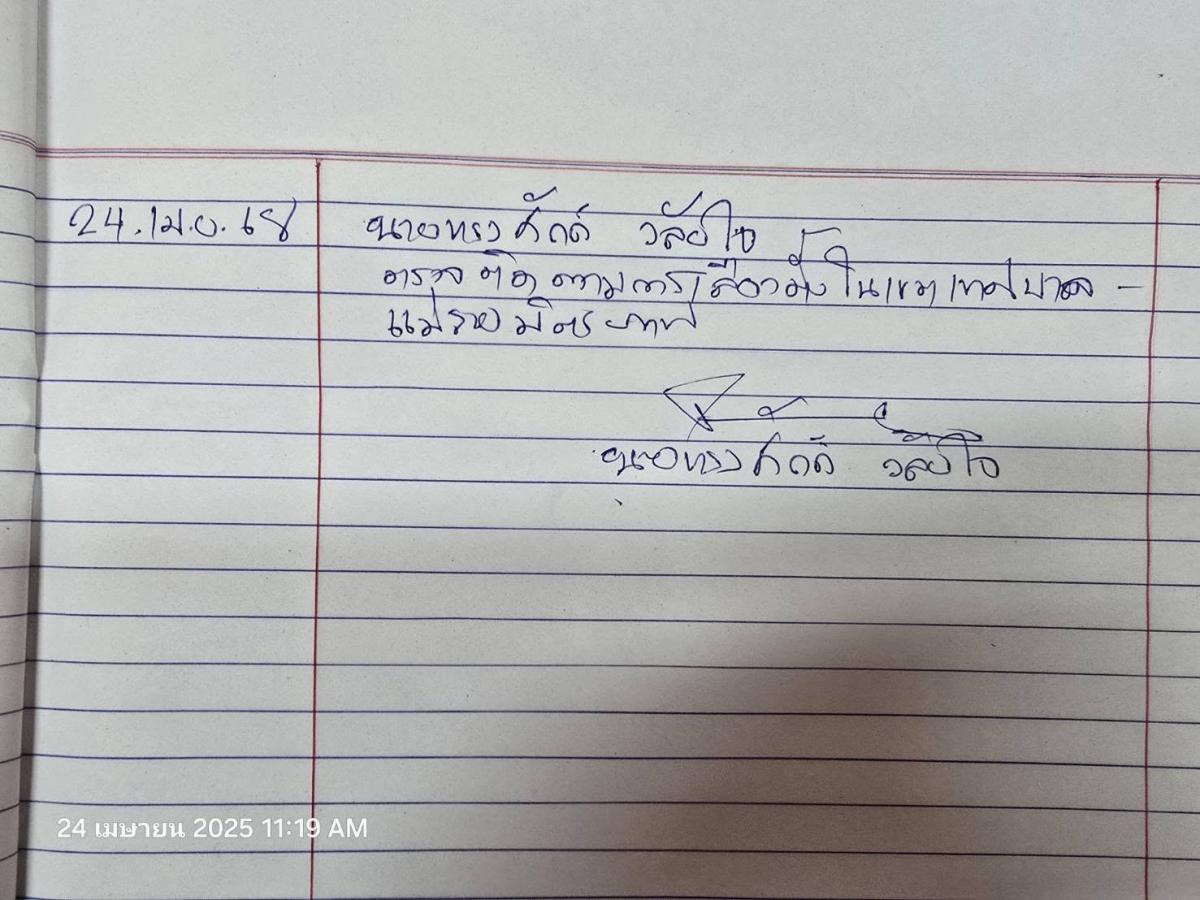 24.เม.ย.68 นายทรงศักดิ์ วลัยใจ
ตรวจติดตามการเลือกตั้งในเขตเทศบาล -
มิตรภาพ
นายทรงศักดิ์ วลัยใจ
24 เมษายน 2025 11:19 AM